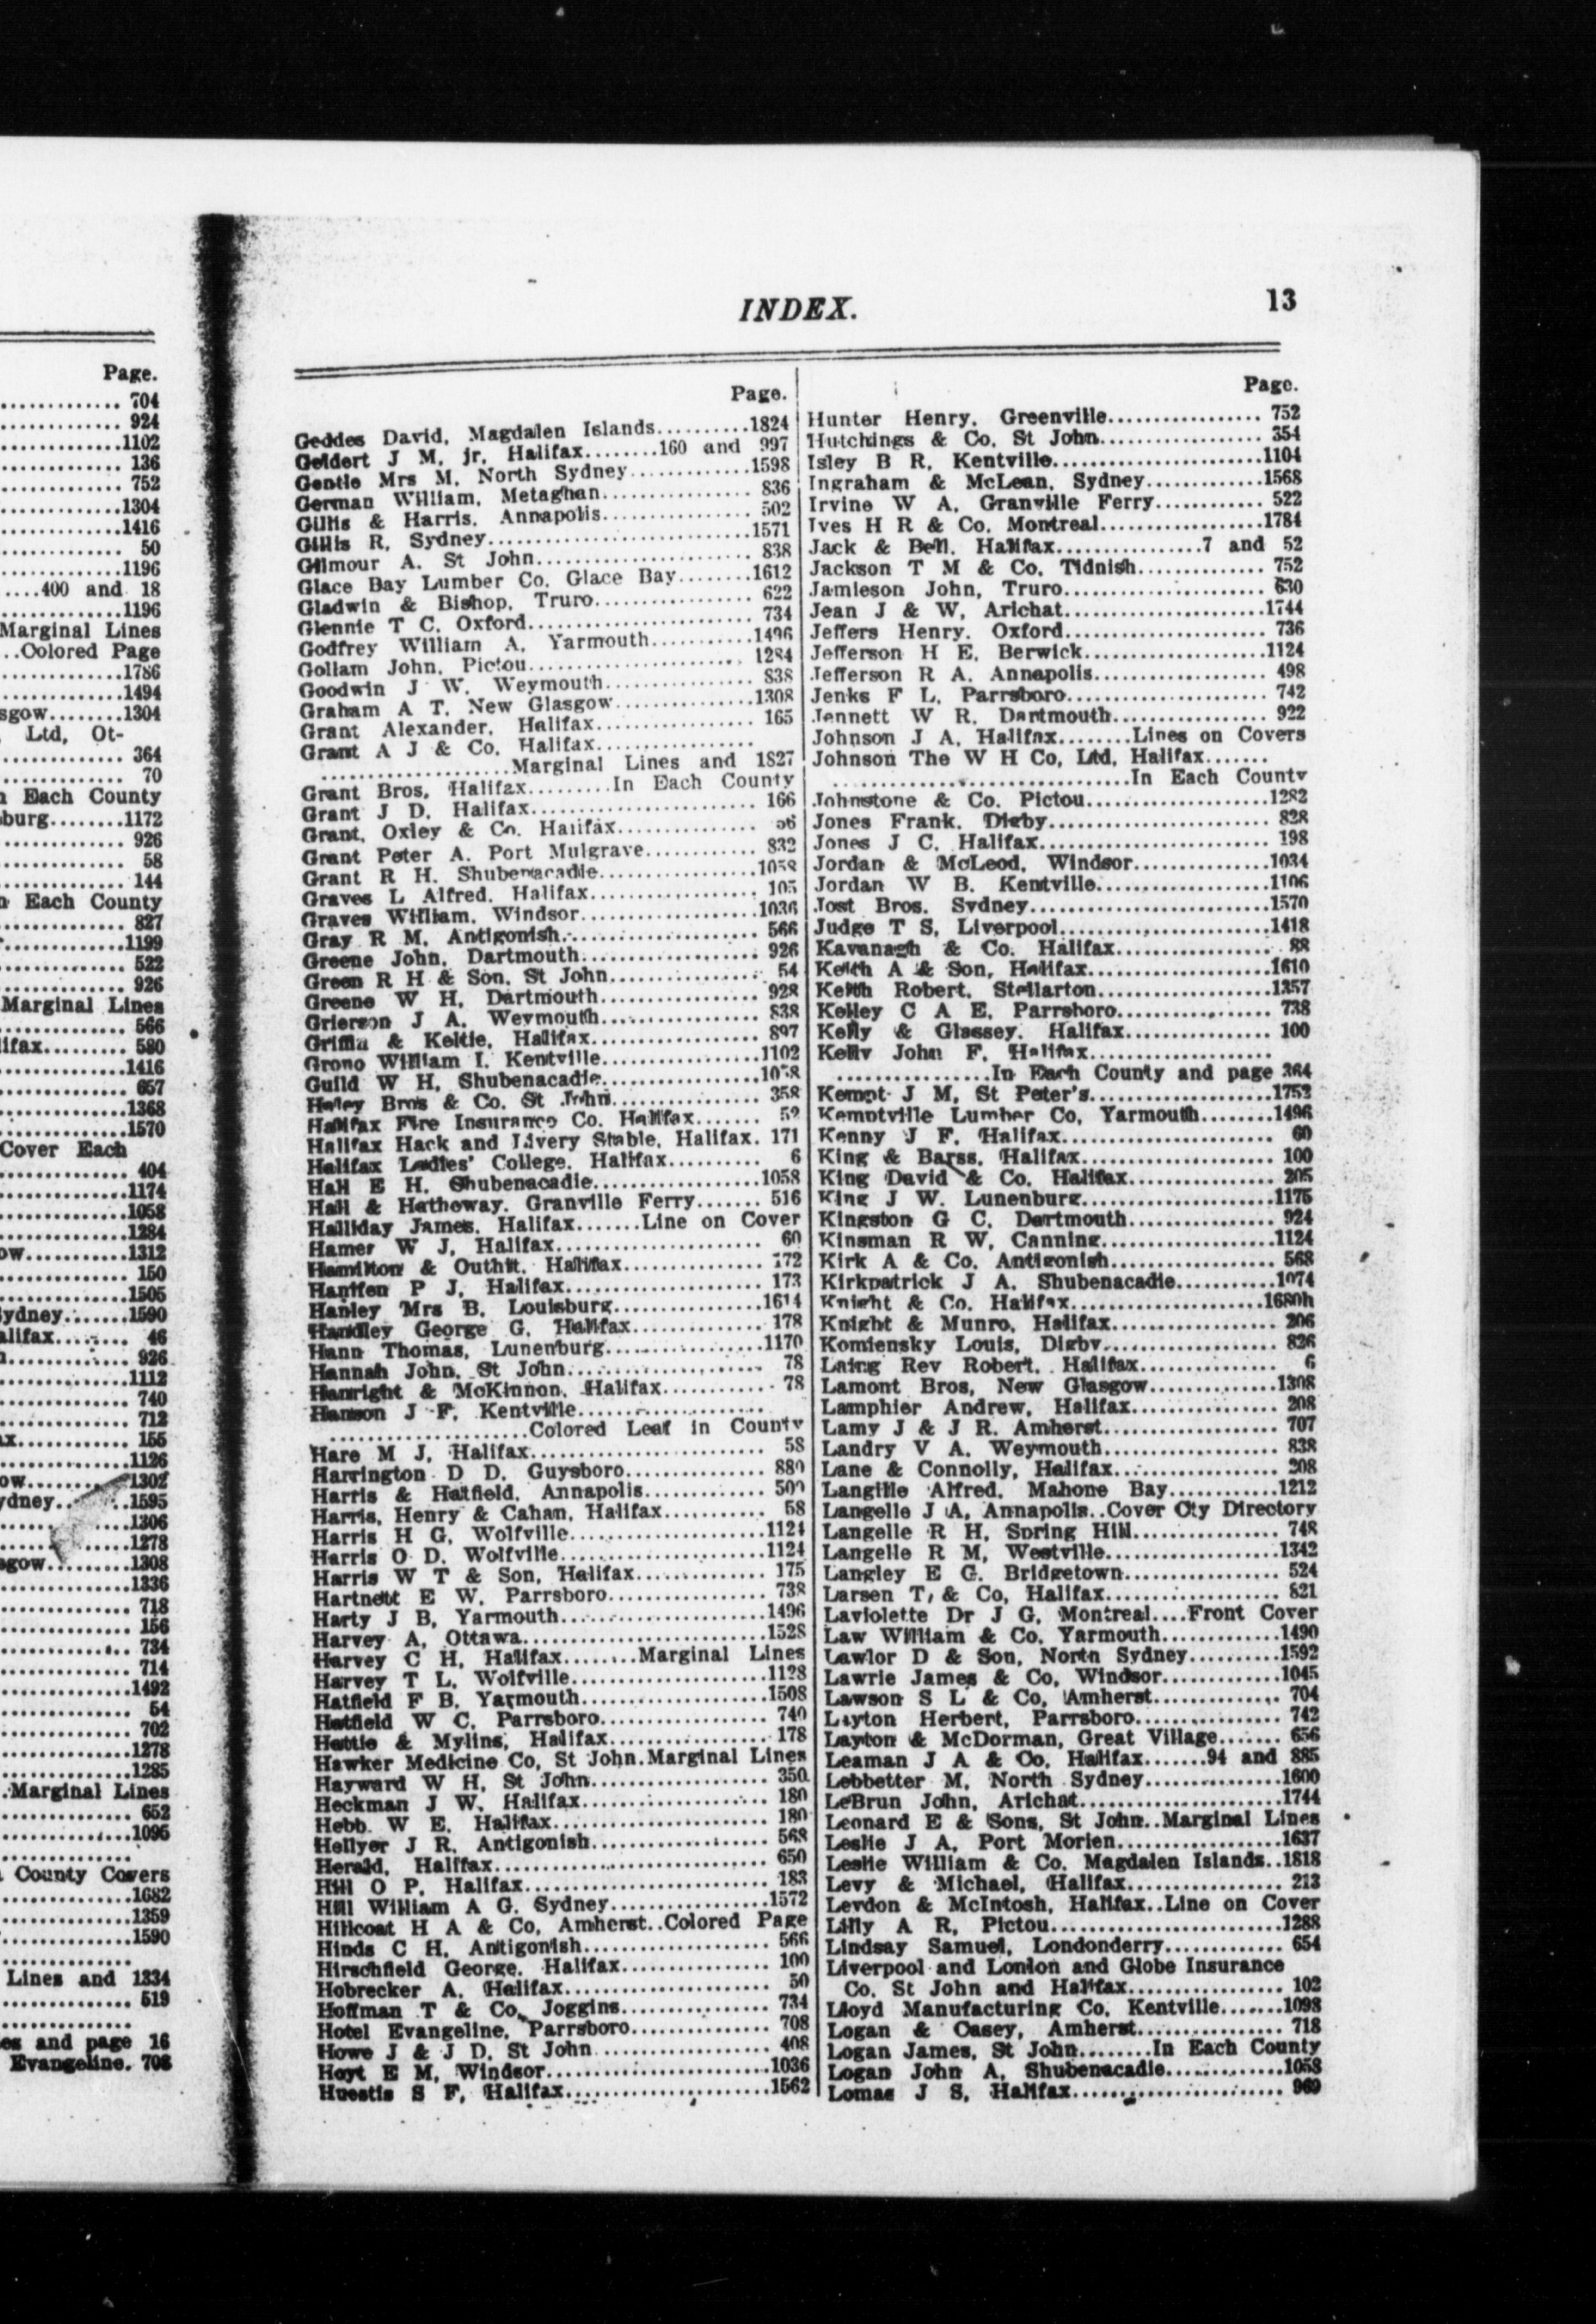 Page.
704
924
1102
136
752
1304
1416
50
1196
400 and 18
1196
Marginal Lines
Colored Page
1786
1494
sgow........1304
Ltd, Ot-
364
70
Each County
burg........1172
926
58
144
Each County
827
1199
522
926
Marginal Lines
566
lifax......... 580
1416
657
1368
1570
Cover Each
404
1174
1058
1284
ow...........1312
150
1505
ydney.......1590
alifax........ 46
926
1112
740
712
ax............ 155
1126
ow...........1302
ydney........1595
1306
1278
sgow.........1308
1336
718
156
734
714
1492
54
702
1278
1285
Marginal Lines
652
1096
County Covers
1682
1359
1590
Lines and 1334
519
es and page 16
Evangeline. 708
INDEX. 13
Page.
Geddes David, Magdalen Islands..........1824
Geldert J M, jr, Halifax........160 and 997
Gentle Mrs M, North Sydney.............1598
German William, Metaghan................ 836
Gillis & Harris, Annapolis................ 502
Gillis R, Sydney............................1571
Gilmour A. St John........................ 838
Glace Bay Lumber Co. Glace Bay........1612
Gladwin & Bishop, Truro.................. 622
Glennie T C, Oxford........................ 734
Godfrey William A, Yarmouth...........1496
Gollam John, Pictou........................ 1284
Goodwin J W, Weymouth................ 838
Graham A T, New Glasgow...............1308
Grant Alexander, Halifax................. 165
Grant A J & Co, Halifax.................
....................Marginal Lines and 1827
Grant Bros, Halifax.........In Each County
Grant J D, Halifax........................ 166
Grant, Oxley & Co. Halifax............... 56
Grant Peter A. Port Mulgrave............ 832
Grant R H. Shubenacadie.................1058
Graves L Alfred, Halifax.................. 105
Graves William, Windsor...................1036
Gray R M, Antigonish..................... 566
Greene John, Dartmouth................... 926
Green R H & Son, St John................ 54
Greene W H, Dartmouth.................. 928
Grierson J A, Weymouth.................. 838
Griffin & Keltie, Halifax.................. 897
Grono William I, Kentville.................1102
Guild W H, Shubenacadie.................1058
Haley Bros & Co. St John................ 358
Halifax Fire Insurance Co. Halifax....... 52
Halifax Hack and Livery Stable, Halifax. 171
Halifax Ladies' College, Halifax.......... 6
Hall E H, Shubenacadie..................1058
Hall & Hatheway. Granville Ferry....... 516
Halliday James, Halifax.......Line on Cover
Hamer W J, Halifax...................... 60
Hamilton & Outhit, Halifax............... 172
Hanifen P J, Halifax...................... 173
Hanley Mrs B. Louisburg................1614
Handley George G, Halifax.............. 178
Hann Thomas, Lunenburg.................1170
Hannah John, St John..................... 78
Hanright & McKinnon, Halifax............ 78
Hanson J F, Kentville....................
......................Colored Leaf in County
Hare M J, Halifax......................... 58
Harrington D D, Guysboro................ 880
Harris & Hatfield, Annapolis............. 500
Harris, Henry & Cahan, Halifax.......... 58
Harris H G, Wolfville.....................1124
Harris O D, Wolfville......................1124
Harris W T & Son, Halifax.............. 175
Hartnett E W, Parrsboro.................. 738
Harty J B, Yarmouth......................1496
Harvey A, Ottawa..........................1528
Harvey C H, Halifax........Marginal Lines
Harvey T L, Wolfville.....................1128
Hatfield F B, Yarmouth....................1508
Hatfield W C, Parrsboro.................. 740
Hattie & Mylins, Halifax.................. 178
Hawker Medicine Co, St John.Marginal Lines
Hayward W H, St John................... 350
Heckman J W, Halifax.................... 180
Hebb W E, Halifax........................ 180
Hellyer J R, Antigonish................... 568
Herald, Halifax............................. 650
Hill O P, Halifax.......................... 183
Hill William A G, Sydney.................1572
Hillcoat H A & Co, Amherst..Colored Page
Hinds C H, Antigonish.................... 566
Hirschfield George, Halifax............... 100
Hobrecker A, Halifax..................... 50
Hoffman T & Co, Joggins................ 734
Hotel Evangeline, Parrsboro............... 708
Howe J & J D, St John................... 408
Hoyt E M, Windsor........................1036
Huestis S F, Halifax......................1562
Page.
Hunter Henry, Greenville................. 752
Hutchings & Co, St John.................. 354
Isley B R, Kentville.......................1104
Ingraham & McLean, Sydney.............1568
Irvine W A, Granville Ferry............ 522
Ives H R & Co, Montreal..................1784
Jack & Bell, Halifax................7 and 52
Jackson T M & Co, Tidnish.............. 752
Jamieson John, Truro...................... 630
Jean J & W, Arichat......................1744
Jeffers Henry, Oxford...................... 736
Jefferson H E, Berwick....................1124
Jefferson R A, Annapolis................... 498
Jenks F L, Parrsboro...................... 742
Jennett W R, Dartmouth................. 922
Johnson J A, Halifax........Lines on Covers
Johnson The W H Co, Ltd, Halifax.......
................................In Each County
Johnstone & Co, Pictou....................1282
Jones Frank, Digby........................ 828
Jones J C, Halifax......................... 198
Jordan & McLeod, Windsor...............1034
Jordan W B, Kentville...................1106
Jost Bros. Sydney..........................1570
Judge T S, Liverpool.......................1418
Kavanagh & Co, Halifax.................. 88
Keith A & Son, Halifax...................1610
Keith Robert, Stellarton...................1357
Kelley C A E, Parrsboro.................. 738
Kelly & Glassey, Halifax................. 100
Kelly John F, Halifax....................
................In Each County and page 364
Kempt J M, St Peter's....................1752
Kemptville Lumber Co, Yarmouth........1496
Kenny J F, Halifax....................... 60
King & Barss, Halifax..................... 100
King David & Co, Halifax................ 205
King J W, Lunenburg.....................1175
Kingston G C, Dartmouth................ 924
Kinsman R W, Canning...................1124
Kirk A & Co, Antigonish.................. 568
Kirkpatrick J A, Shubenacadie...........1074
Knight & Co, Halifax......................1680h
Knight & Munro, Halifax................. 206
Komiensky Louis, Digby................... 826
Laing Rev Robert, Halifax............... 6
Lamont Bros, New Glasgow..............1308
Lamphier Andrew, Halifax................ 208
Lamy J & J R, Amherst.................. 707
Landry V A, Weymouth.................. 838
Lane & Connolly, Halifax................. 208
Langille Alfred, Mahone Bay............1212
Langelle J A, Annapolis..Cover Cty Directory
Langelle R H, Spring Hill................ 748
Langelle R M, Westville...................1342
Langley E G, Bridgetown................. 524
Larsen T, & Co, Halifax.................. 821
Laviolette Dr J G, Montreal....Front Cover
Law William & Co, Yarmouth............1490
Lawlor D & Son, North Sydney..........1592
Lawrie James & Co, Windsor............1045
Lawson S L & Co, Amherst.............. 704
Layton Herbert, Parrsboro................ 742
Layton & McDorman, Great Village....... 656
Leaman J A & Co, Halifax.......94 and 885
Lebbetter M, North Sydney..............1600
LeBrun John, Arichat......................1744
Leonard E & Sons, St John..Marginal Lines
Leslie J A, Port Morien...................1637
Leslie William & Co, Magdalen Islands..1818
Levy & Michael, Halifax.................. 213
Levdon & McIntosh, Halifax..Line on Cover
Lilly A R, Pictou..........................1288
Lindsay Samuel, Londonderry............. 654
Liverpool and London and Globe Insurance
Co. St John and Halifax.................. 102
Lloyd Manufacturing Co, Kentville.......1098
Logan & Casey, Amherst................. 718
Logan James, St John........In Each County
Logan John A, Shubenacadie.............1058
Lomas J S, Halifax........................ 969